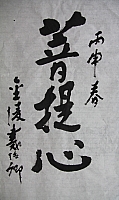 丙申春
菩提心
金陵